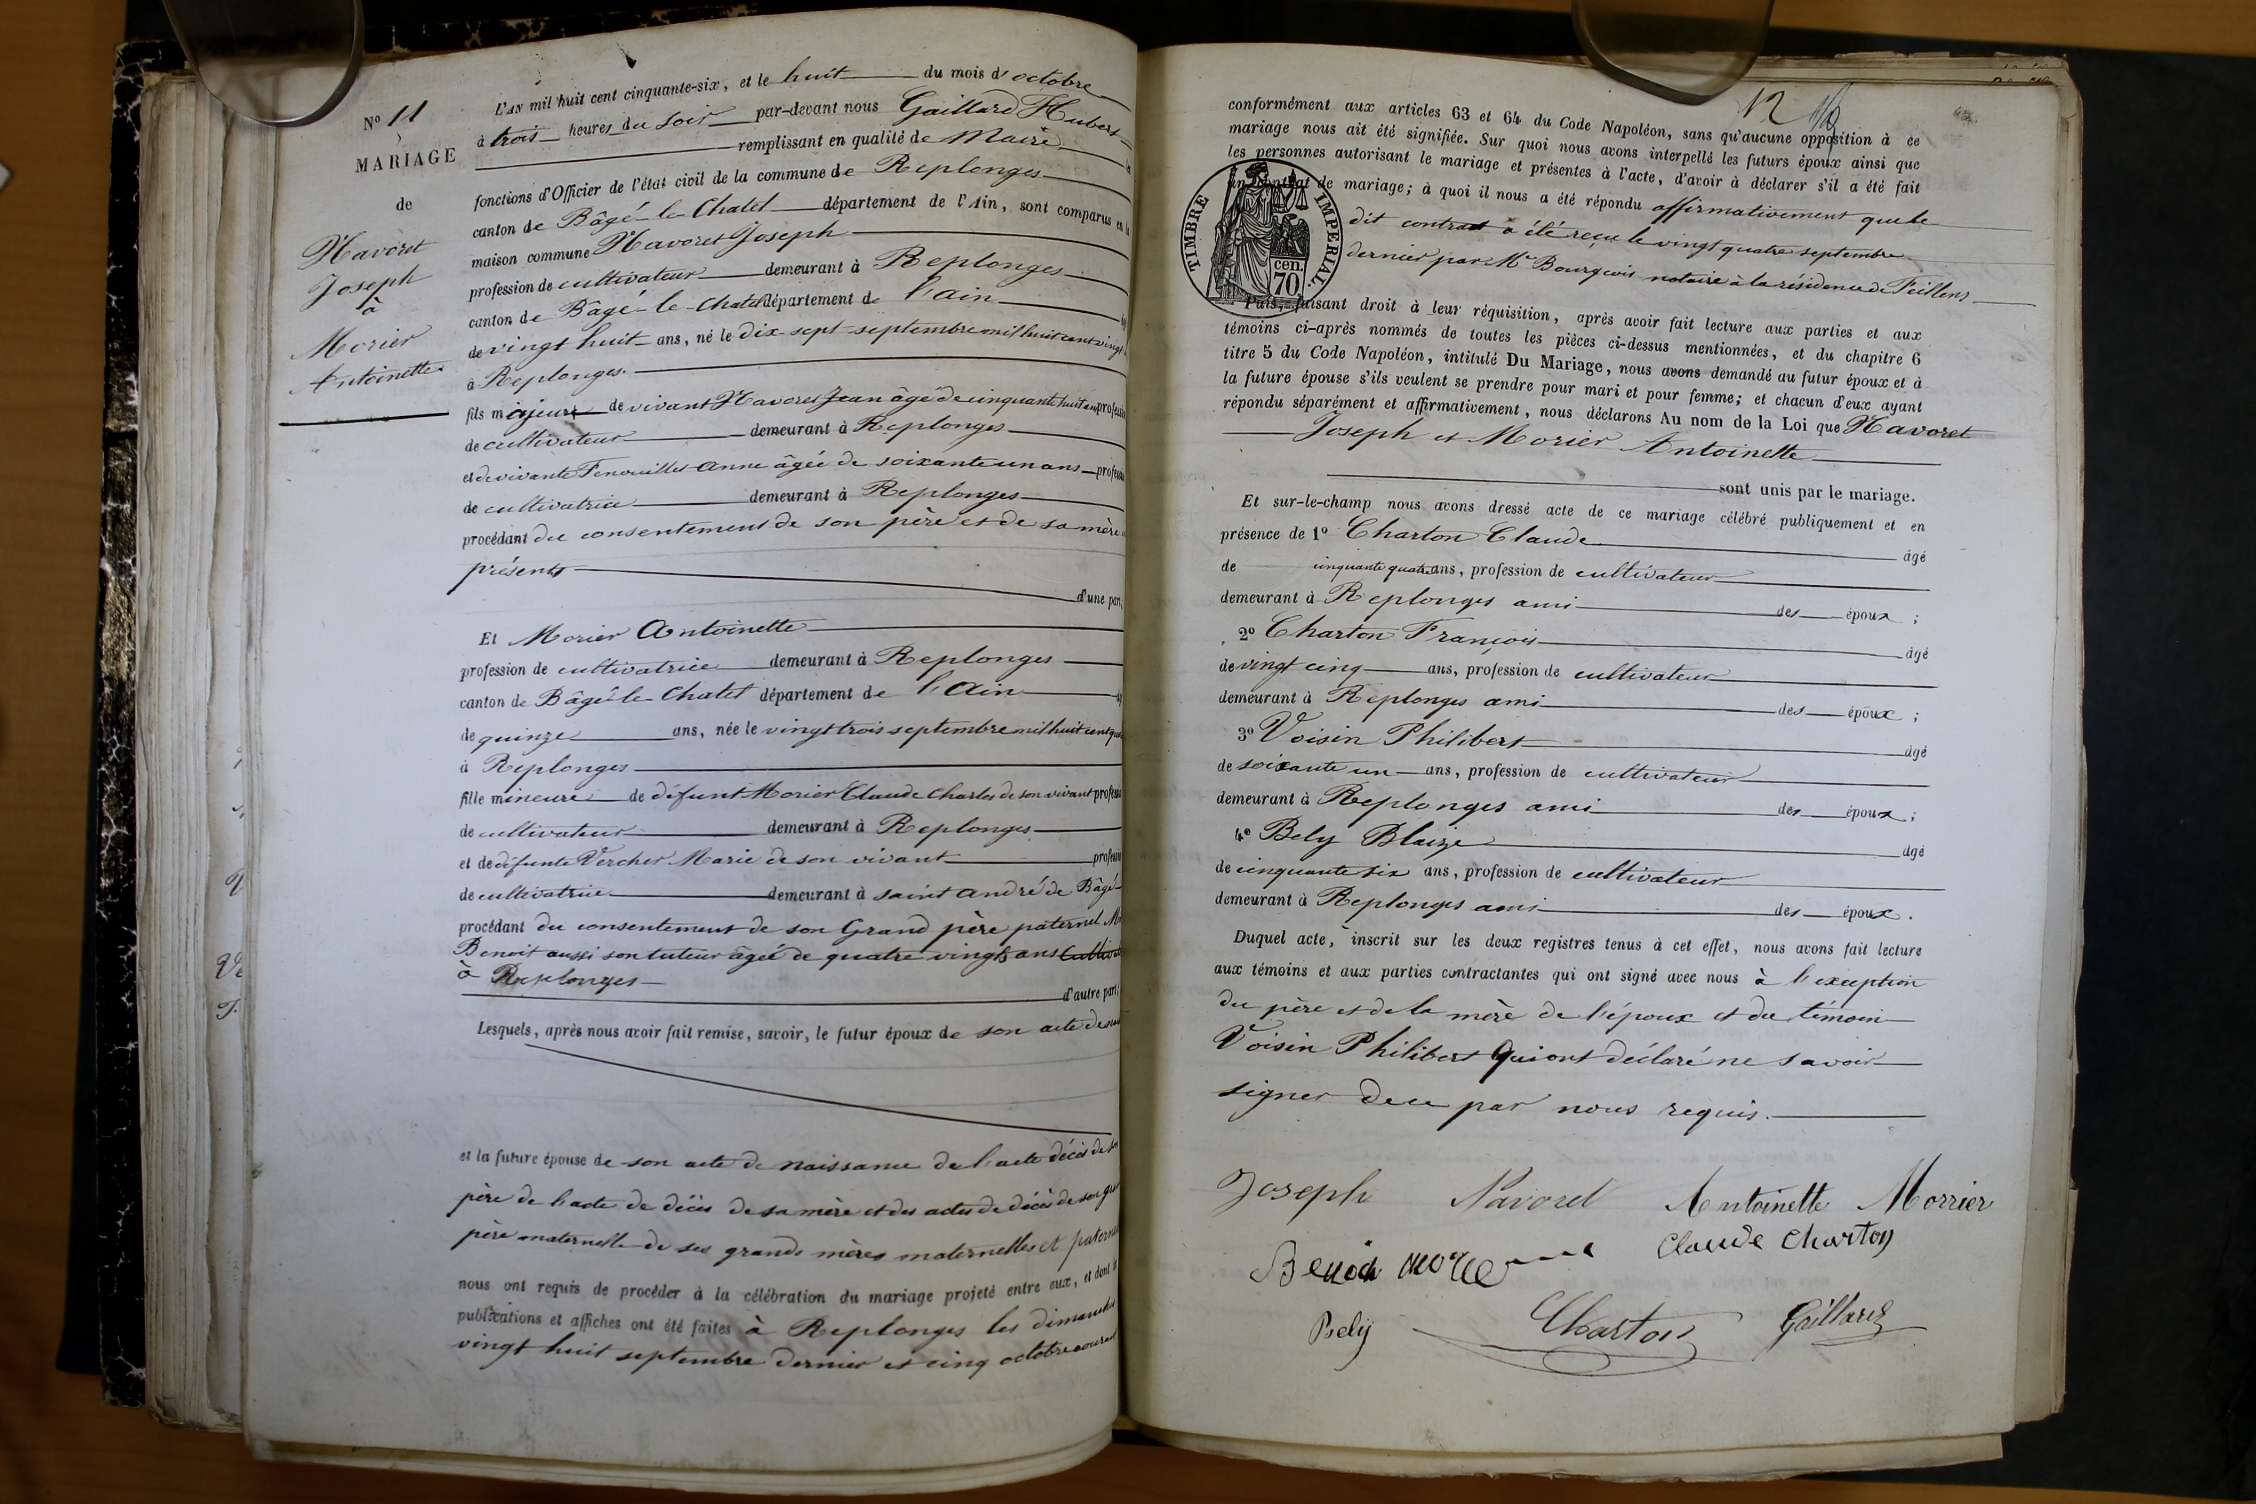 N° 11
MARIAGE
de
Navoret
Joseph
à
Morier
Antoinette
L'AN mil huit cent cinquante-six, et le huit du mois d'octobre
à trois heures du soir par-devant nous Gaillard Hubert
remplissant en qualité de Maire
fonctions d'Officier de l'état civil de la commune de Replonges
canton de Bâgé-le-Chatel département de l'Ain, sont comparus en la
maison commune Navoret Joseph
profession de cultivateur demeurant à Replonges
canton de Bâgé-le-chatel département de l'ain
de vingt huit ans, né le dix sept septembre mil huit cent vingt
à Replonges.
fils majeur de vivant Navoret Jean âgé de cinquante huit ans profession
de cultivateur demeurant à Replonges
et de vivante Fenouillet Anne âgée de soixante un ans profession
de cultivatrice demeurant à Replonges
procédant du consentement de son père et de sa mère
présents
d'une part,
Et Morier Antoinette
profession de cultivatrice demeurant à Replonges
canton de Bâgé-le-Chatel département de l'Ain
de quinze ans, née le vingt trois septembre mil huit cent
à Replonges
fille mineure de défunt Morier Claude Charles de son vivant profession
de cultivateur demeurant à Replonges
et de défunte Vercher Marie de son vivant profession
de cultivatrice demeurant à saint andré de Bâgé
procédant du consentement de son Grand père paternel
Benoit aussi son tuteur âgé de quatre vingts ans
à Replonges
d'autre part;
Lesquels, après nous avoir fait remise, savoir, le futur époux de son acte de
et la future épouse de son acte de naissance de l'acte décès de son
père de l'acte de décès de sa mère et des actes de décès de son
père maternelle de ses grands mères maternelles et
nous ont requis de procéder à la célébration du mariage projeté entre eux, et dont les
publications et affiches ont été faites à Replonges les dimanches
vingt huit septembre dernier et cinq octobre courant
12
conformément aux articles 63 et 64 du Code Napoléon, sans qu'aucune opposition à ce
mariage nous ait été signifiée. Sur quoi nous avons interpellé les futurs époux ainsi que
les personnes autorisant le mariage et présentes à l'acte, d'avoir à déclarer s'il a été fait
un contrat de mariage; à quoi il nous a été répondu affirmativement que le
dit contrat a été reçu le vingt quatre septembre
dernier par Me Bourgeois notaire à la résidence de Feillens
TIMBRE IMPERIAL.
cen.
70
Puis, faisant droit à leur réquisition, après avoir fait lecture aux parties et aux
témoins ci-après nommés de toutes les pièces ci-dessus mentionnées, et du chapitre 6
titre 5 du Code Napoléon, intitulé Du Mariage, nous avons demandé au futur époux et à
la future épouse s'ils veulent se prendre pour mari et pour femme; et chacun d'eux ayant
répondu séparément et affirmativement, nous déclarons Au nom de la Loi que Navoret
Joseph et Morier Antoinette
sont unis par le mariage.
Et sur-le-champ nous avons dressé acte de ce mariage célébré publiquement et en
présence de 1° Charton Claude âgé
de cinquante quatre ans, profession de cultivateur
demeurant à Replonges ami des époux ;
2° Charton François âgé
de vingt cinq ans, profession de cultivateur
demeurant à Replonges ami des époux ;
3° Voisin Philibert âgé
de soixante un ans, profession de cultivateur
demeurant à Replonges ami des époux ;
4° Bely Blaize âgé
de cinquante six ans, profession de cultivateur
demeurant à Replonges ami des époux .
Duquel acte, inscrit sur les deux registres tenus à cet effet, nous avons fait lecture
aux témoins et aux parties contractantes qui ont signé avec nous à l'exception
du père et de la mère de l'époux et du témoin
Voisin Philibert qui ont déclaré ne savoir
signer de ce par nous requis.
Joseph Navoret Antoinette Morrier
Benoit Claude Charton
Bely Charton Gaillard